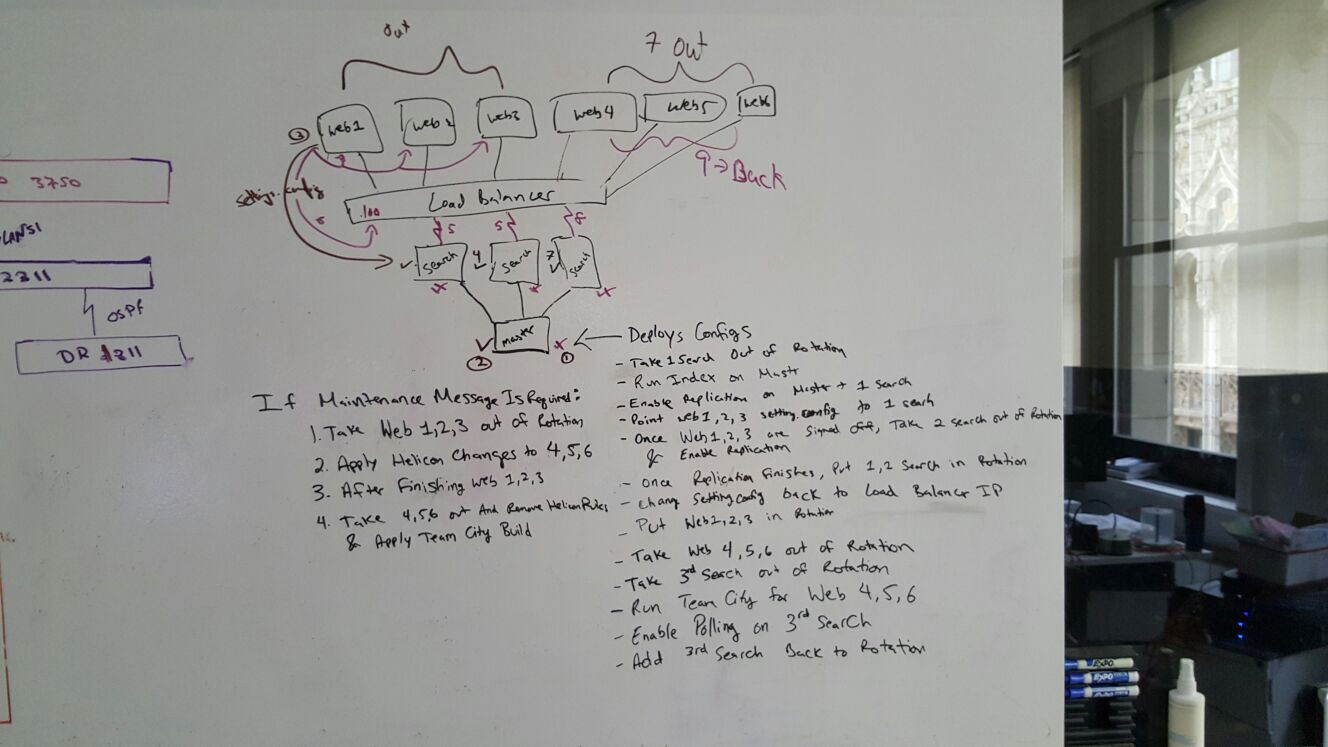 out
7 out
web1
web2
web3
web4
web5
web6
③
9→Back
3750
setting.config
Load Balancer
.100
6
5
5
8
LANS1
2311
search
4
search
7
search
OSPF
master
②
①
Deploys Configs
DR 2811
- Take 1 Search Out of Rotation
- Run Index on Mastr
- Enable Replication on Master + 1 Search
- Point web1,2,3 setting.config to 1 search
- Once Web1,2,3 are Signed off, Take 2 search out of Rotation
& Enable Replication
- Once Replication Finishes, Put 1,2 Search in Rotation
- Chang Setting Config back to Load Balancer IP
- Put Web1,2,3 in Rotation
- Take Web 4,5,6 out of Rotation
- Take 3rd Search out of Rotation
- Run Team City for Web 4,5,6
- Enable Polling on 3rd Search
- Add 3rd Search Back to Rotation
If Maintenance Message Is Required:
1. Take Web 1,2,3 out of Rotation
2. Apply Helicon Changes to 4,5,6
3. After Finishing Web 1,2,3
4. Take 4,5,6 out And Remove Helicon Rules
& Apply Team City Build
EXPO
EXPO
EXPO